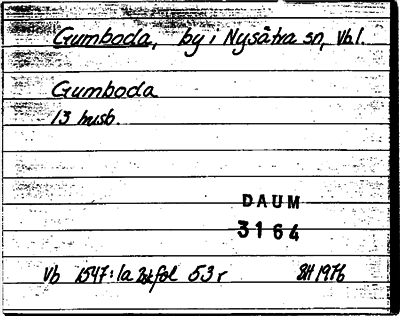 Gumboda, by i Nysätra sn, Vb l.
Gumboda
13 husb.
DAUM
3164
Vb 1547: 1a fol 53 r BH 1976